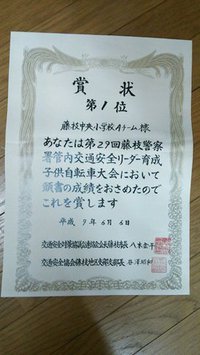 賞状
第1位
藤枝中央小学校Aチーム 様
あなたは第29回藤枝警察
署管内交通安全リーダー育成
子供自転車大会において
頭書の成績をおさめたので
これを賞します
平成9年6月6日
交通安全協会藤枝地区支部長